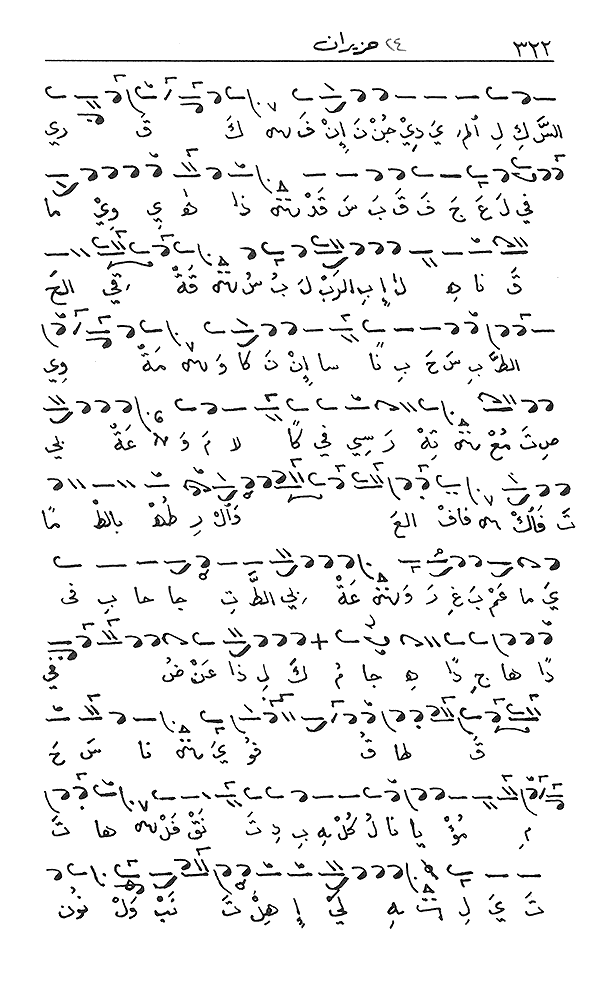 ٣٢٢ ٢٤ حزيران
السَّ كِ لِ الم يَ دِيْ جُنْ نَ إِنْ فَ كَ قَ دي
في لَ عَ جَ فَ قَ بَ سَ قَدْ ذا هٰ يِ وِيْ ما
قَ نا هِ لٰ إِ بِ الرَبْ لَ بُ سُ قَةْ قي الحَ
الطَّ بِ سَ حَ بِ نًا سا إِنْ نَ كا وَ مَةْ وي
صِ تَ مُعْ تِهْ رَ سِي في كًا لا مَ وَ عَةْ بي
تَ فَاكْ فافْ العَ وَاكْ رِ طُهْ بالطْ مًا
يَ ما عَمْ بَ غِ رَ وَ عَةْ بي الطَّ تِ جا حا بِ في
ذًا ها جِ ذًا هِ جا مُ كَ لِ ذا عَنْ ضُ في
قُ طا قُ فو يَ نا سَ حَ
مِ مُؤْ يا نا لُ كُلْ بِهِ بِ دِ تَ نَقْ فَلْ ها تَ
تَ يَ لِ بِهِ لي إِ هِلْ تَ نَبْ وَلْ نون